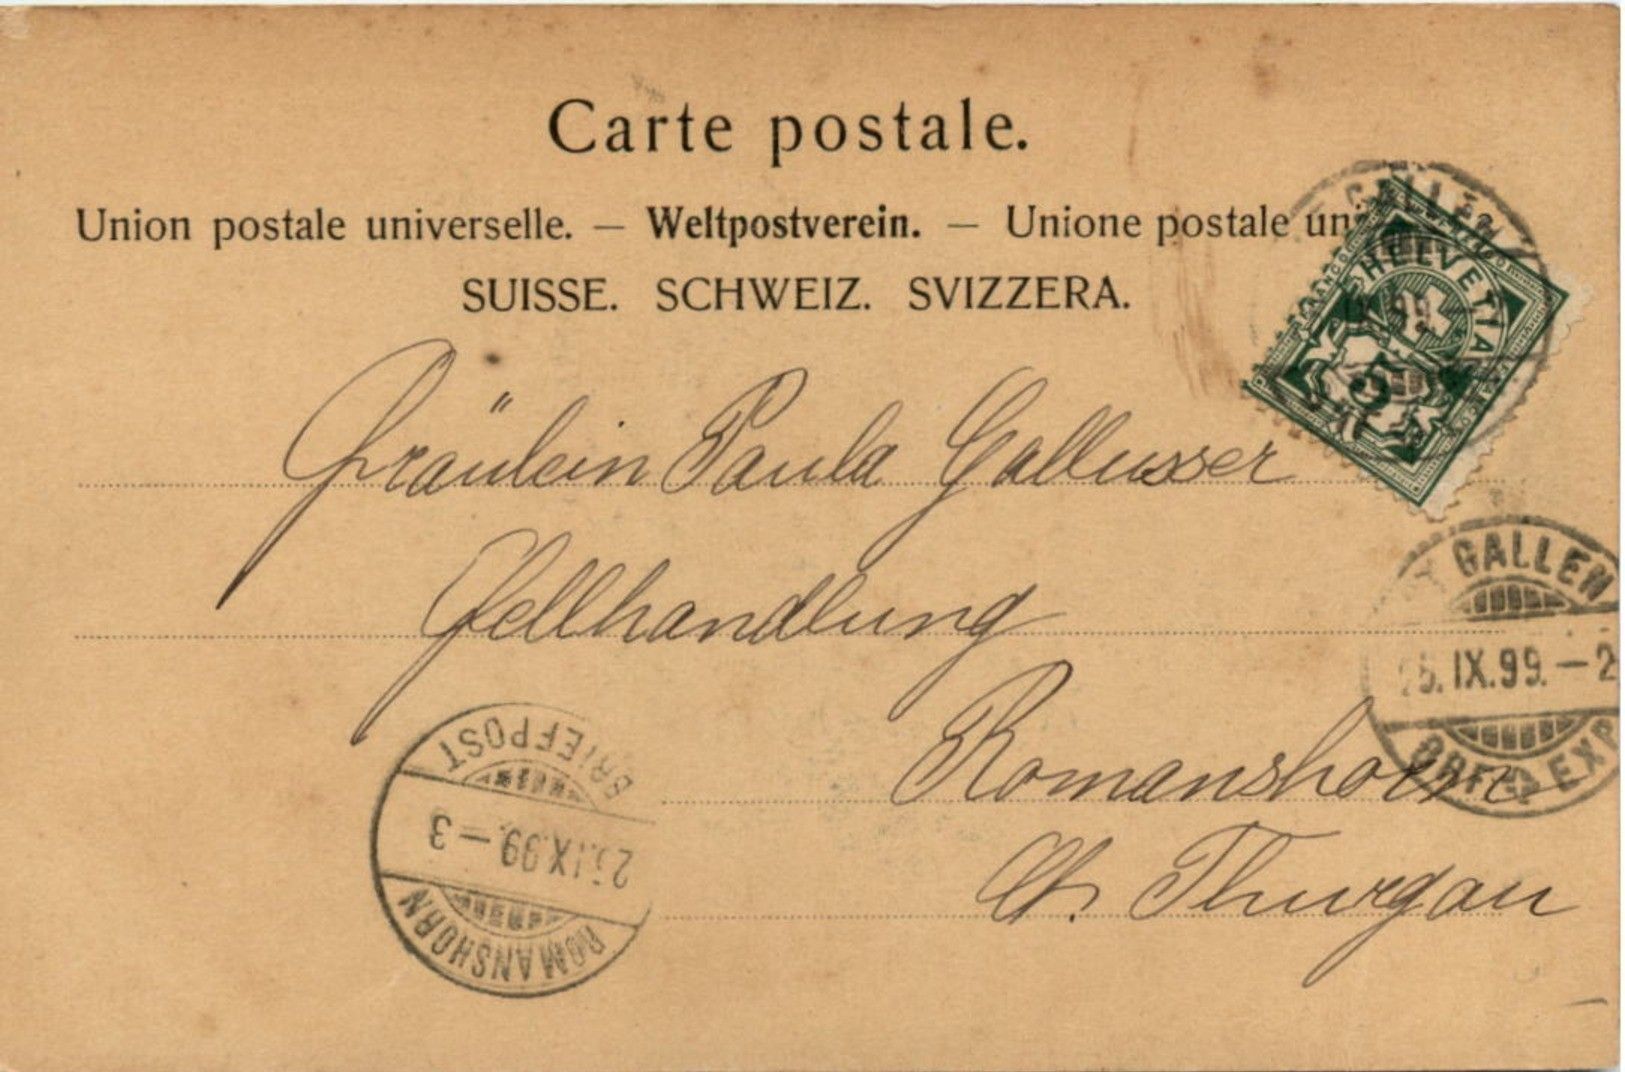 Carte postale.
Union postale universelle. — Weltpostverein. — Unione postale un
SUISSE. SCHWEIZ. SVIZZERA.
GALLEN
FRANCO
HELVETIA
5
Fräulein Paula Gallusser
Fellhandlung
Romanshorn
Ct. Thurgau
GALLEN
25.IX.99.-2
BRF. EXP
BRIEFPOST
25.IX.99.-3
ROMANSHORN